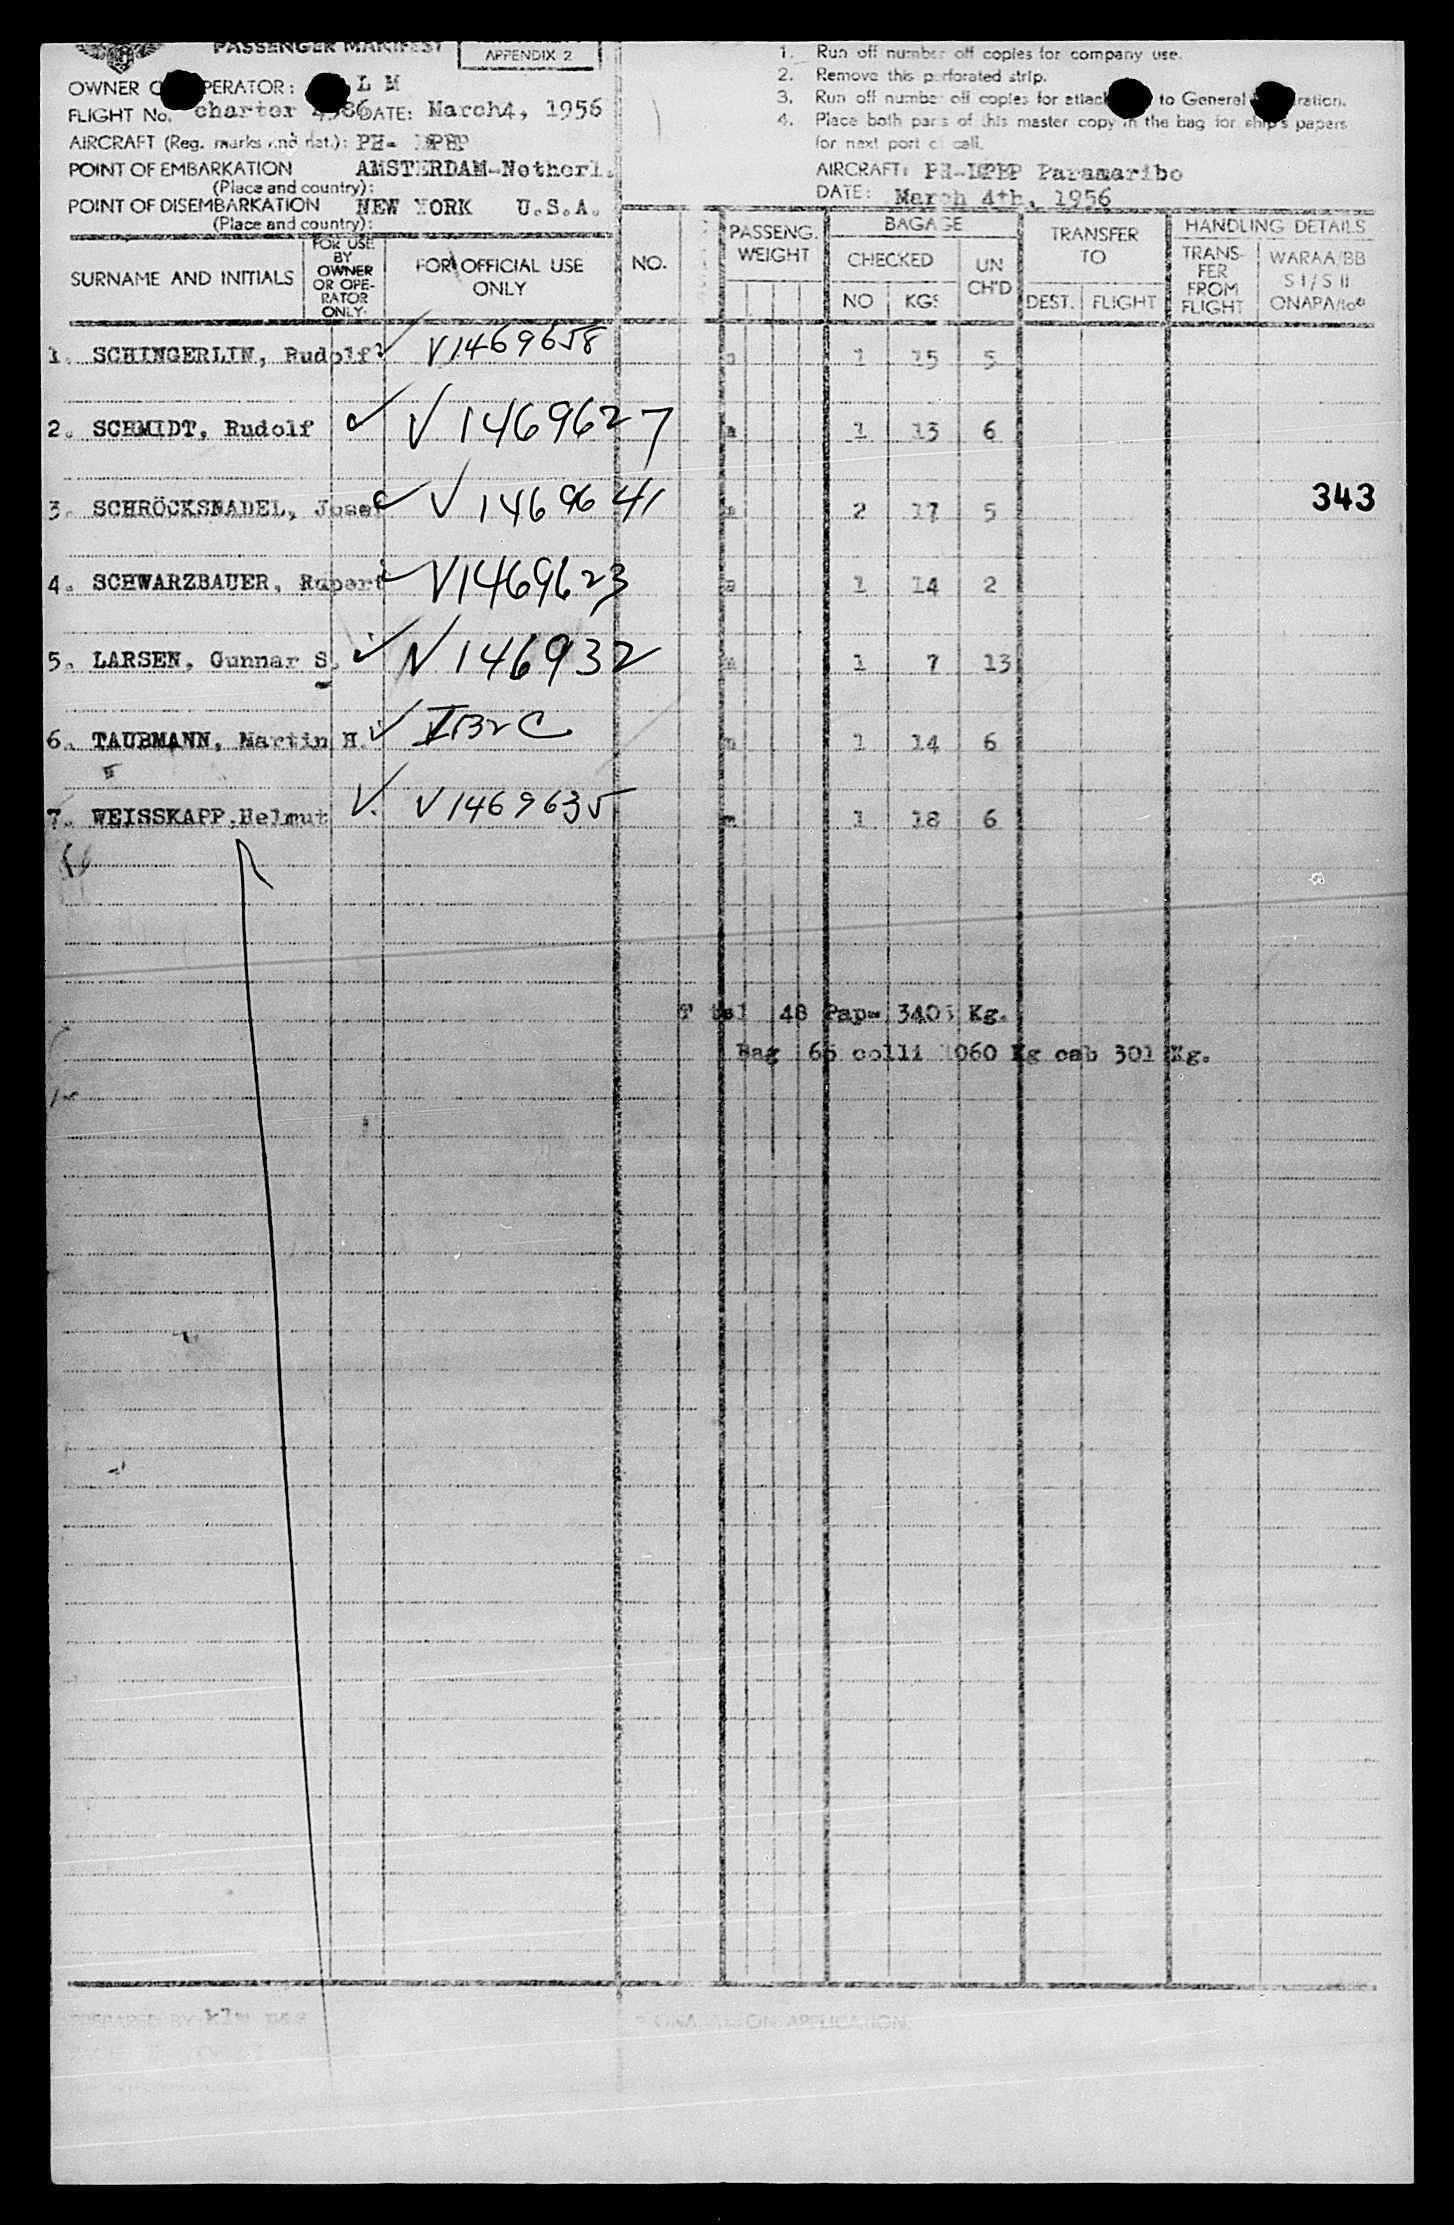 PASSENGER MANIFEST
APPENDIX 2
OWNER O PERATOR: L M
FLIGHT No. charter DATE: March4, 1956
AIRCRAFT (Reg. marks and nat.): PH-
POINT OF EMBARKATION AMSTERDAM-Netherl.
(Place and country):
POINT OF DISEMBARKATION NEW YORK U.S.A.
(Place and country):
1. Run off number off copies for company use.
2. Remove this perforated strip.
3. Run off number off copies for attach to General ration.
4. Place both parts of this master copy in the bag for ship's papers
for next port of call.
AIRCRAFT: Paramaribo
DATE: March 4th, 1956
SURNAME AND INITIALS
FOR USE
BY
OWNER
OR OPE-
RATOR
ONLY.
FOR OFFICIAL USE
ONLY
NO.
PASSENG.
WEIGHT
BAGAGE
CHECKED
NO KGS
UN
CH'D
TRANSFER
TO
DEST. FLIGHT
HANDLING DETAILS
TRANS-
FER
FROM
FLIGHT
WARAA/BB
S I / S II
1. SCHINGERLIN, Rudolf V1469658 1 15 5
2. SCHMIDT, Rudolf V1469627 1 13 6
3. SCHRÖCKSNADEL, Josef V1469641 2 17 5
343
4. SCHWARZBAUER, Rupert V1469623 1 14 2
5. LARSEN, Gunnar S. V146932 1 7 13
6. TAUBMANN, Martin H. 1 14 6
7. WEISSKAPP, Helmut V1469635 m 1 18 6
T tal 48 Pap- Kg.
Bag colli 1060 Kg cab 301 Kg.
PREPARED BY